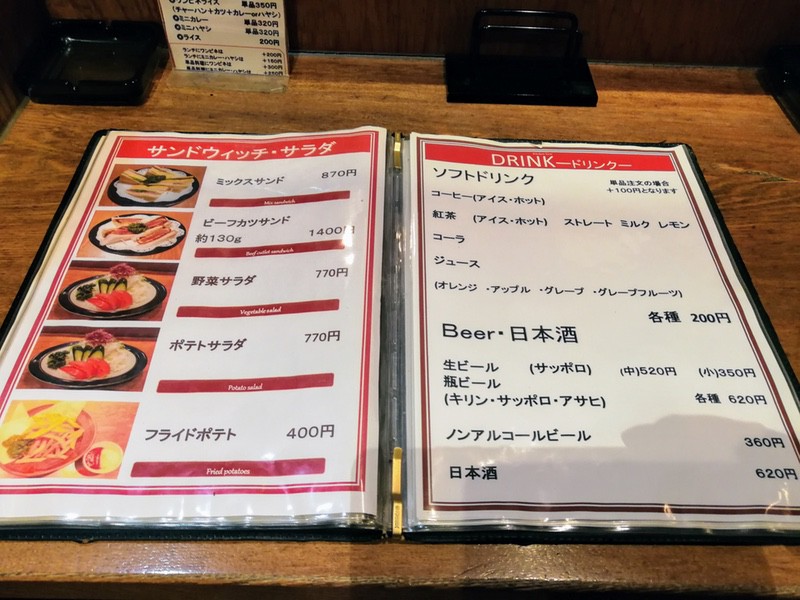 (チャーハン+カツ+カレーorハヤシ)
ミニカレー 単品320円
ミニハヤシ 単品320円
ライス 200円
サンドウィッチ・サラダ
ミックスサンド 870円
Mix sandwich
ビーフカツサンド
約130g 1400円
Beef cutlet sandwich
野菜サラダ 770円
Vegetable salad
ポテトサラダ 770円
Potato salad
フライドポテト 400円
Fried potatoes
DRINK―ドリンク―
ソフトドリンク 単品注文の場合
+100円となります
コーヒー(アイス・ホット)
紅茶 (アイス・ホット) ストレート ミルク レモン
コーラ
ジュース
(オレンジ ・アップル ・グレープ ・グレープフルーツ)
各種 200円
Beer・日本酒
生ビール (サッポロ) (中)520円 (小)350円
瓶ビール
(キリン・サッポロ・アサヒ) 各種 620円
ノンアルコールビール 360円
日本酒 620円